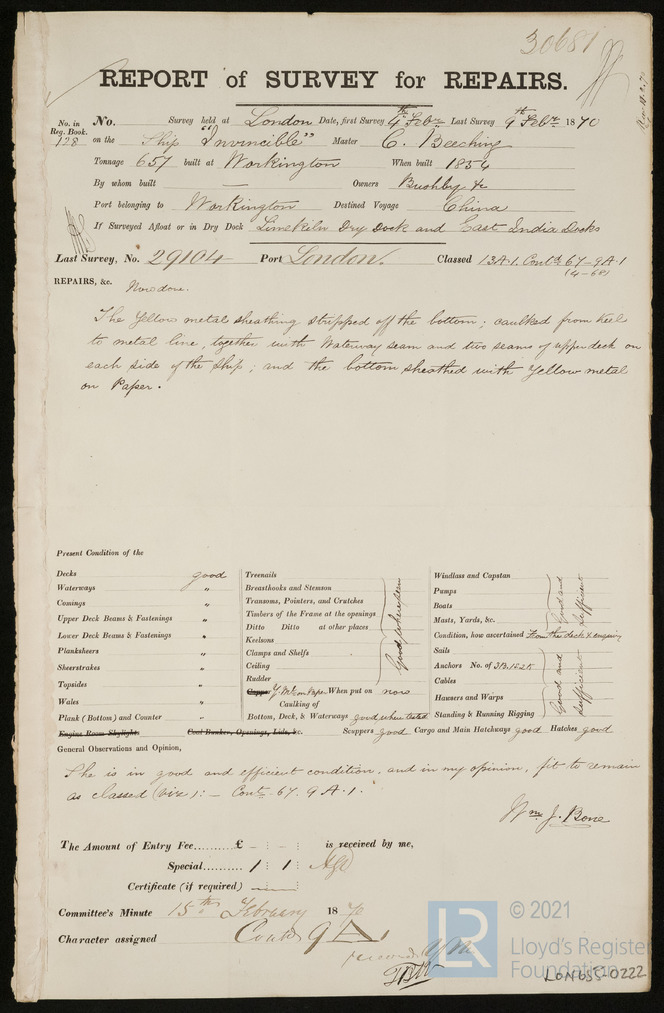 30681
REPORT of SURVEY for REPAIRS.
No. in Reg. Book. 128
No. Survey held at London Date, first Survey 4th Febry Last Survey 9th Febry 1870
on the Ship "Invincible" Master C. Beeching
Tonnage 657 built at Workington When built 1854
By whom built — Owners Bushby & Co
Port belonging to Workington Destined Voyage China
If Surveyed Afloat or in Dry Dock Limekiln Dry Dock and East India Docks
Last Survey, No. 29104 Port London. Classed 13A.1. Contd 67-9A.1
(4-68)
REPAIRS, &c. Now done.
The Yellow metal sheathing stripped off the bottom; caulked from Keel
to metal line, together with Waterway seam and two seams of upper deck on
each side of the Ship; and the bottom sheathed with Yellow metal
on Paper.
Present Condition of the
Decks good
Waterways "
Comings "
Upper Deck Beams & Fastenings "
Lower Deck Beams & Fastenings "
Planksheers "
Sheerstrakes "
Topsides "
Wales "
Plank (Bottom) and Counter "
Engine Room Skylight Coal Bunker, Openings, Lids, &c.
Treenails
Breasthooks and Stemson
Transoms, Pointers, and Crutches
Timbers of the Frame at the openings
Ditto Ditto at other places
Keelsons
Clamps and Shelfs
Ceiling
Rudder
Good where seen
Copper Y.M. on Paper When put on now
Caulking of
Bottom, Deck, & Waterways good where tested
Windlass and Capstan
Pumps
Boats
Masts, Yards, &c.
Good and sufficient
Condition, how ascertained From the deck & enquiry
Sails
Anchors No. of 3B.1S.2K
Cables
Hawsers and Warps
Standing & Running Rigging
Good and sufficient
Scuppers good Cargo and Main Hatchways good Hatches good
General Observations and Opinion,
She is in good and efficient condition, and in my opinion, fit to remain
as classed (viz):- Contd 67. 9.A.1.
Wm J. Bone
The Amount of Entry Fee.......... £ - : - : is received by me,
Special.......... 1 : 1 :
Certificate (if required)
Committee's Minute 15th February 1870
Character assigned Contd 9 A 1
record Y M
LR
© 2021
Lloyd's Register
Foundation
LON655-0222